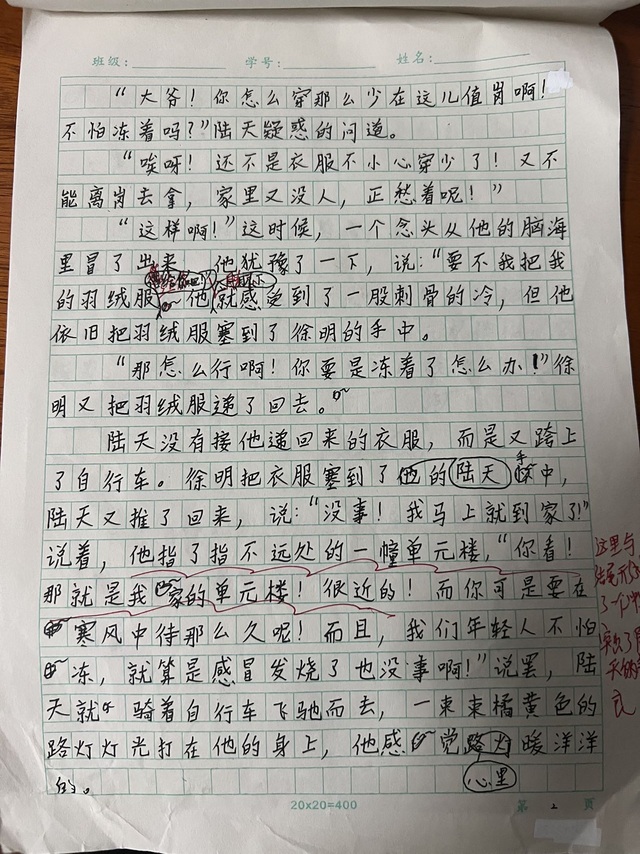 班级：
学号：
姓名：
“大爷！你怎么穿那么少在这儿值岗啊！
不怕冻着吗？”陆天疑惑的问道。
“唉呀！还不是衣服不小心穿少了！又不
能离岗去拿，家里又没人，正愁着呢！”
“这样啊！”这时候，一个念头从他的脑海
里冒了出来，他犹豫了一下，说：“要不我把我
给你吧！”
的羽绒服他就感受到了一股刺骨的冷，但他
依旧把羽绒服塞到了徐明的手中。
“那怎么行啊！你要是冻着了怎么办！”徐
明又把羽绒服递了回去。
陆天没有接他递回来的衣服，而是又跨上
了自行车。徐明把衣服塞到了他的陆天手中，
陆天又推了回来，说：“没事！我马上就到家了！”
说着，他指了指不远处的一幢单元楼，“你看！
这里与
那就是我家的单元楼！很近的！而你可是要在
了一个
寒风中待那么久呢！而且，我们年轻人不怕
冻，就算是感冒发烧了也没事啊！”说罢，陆
天就骑着自行车飞驰而去，一束束橘黄色的
路灯灯光打在他的身上，他感觉路灯暖洋洋
心里
的。
20×20=400
第 2 页